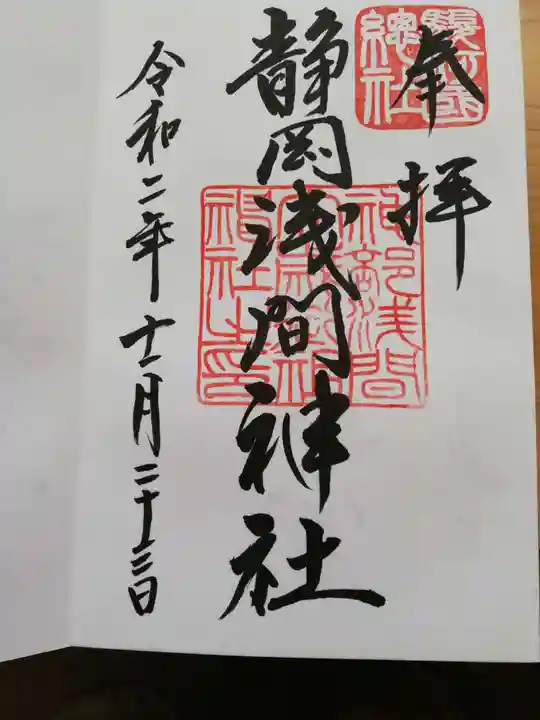 奉拝
駿河國
總社
静岡浅間神社
神部浅間
神社之印
令和二年十一月二十三日